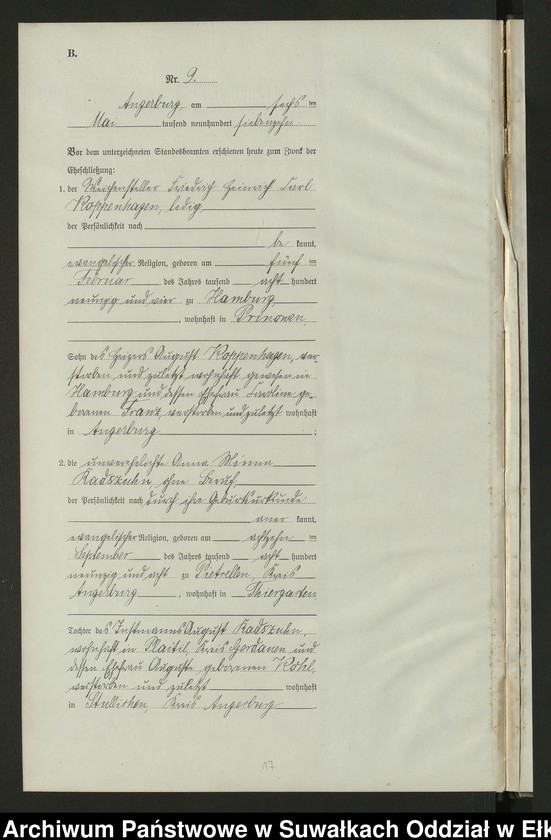 B.
Nr. 9.
Angerburg am sechsten
Mai tausend neunhundert siebenzehn
Vor dem unterzeichneten Standesbeamten erschienen heute zum Zweck der
Eheschließung:
1. der Weichensteller Friedrich Heinrich Carl
Koppenhagen, ledig
der Persönlichkeit nach
be kannt,
evangelischer Religion, geboren am fünften
Februar des Jahres tausend acht hundert
neunzig und vier zu Hamburg
, wohnhaft in Prinowen
Sohn des Heizers August Koppenhagen, ver-
storben und zuletzt wohnhaft gewesen in
Hamburg und dessen Ehefrau Karoline ge-
borenen Franz verstorben und zuletzt wohnhaft
in Angerburg ;
2. die unverehelichte Anna Minna
Kadszuhn, ohne Beruf
der Persönlichkeit nach durch ihre Geburtsurkunde
aner kannt,
evangelischer Religion, geboren am achtzehnten
September des Jahres tausend acht hundert
neunzig und acht zu Pietrellen, Kreis
Angerburg , wohnhaft in Thiergarten
Tochter des Instmanns August Kadszuhn,
wohnhaft in Kreis Gerdauen und
dessen Ehefrau Auguste geborenen Kohl
verstorben und zuletzt wohnhaft
in Stullichen, Kreis Angerburg .
17
Archiwum Państwowe w Suwałkach Oddział w Ełk